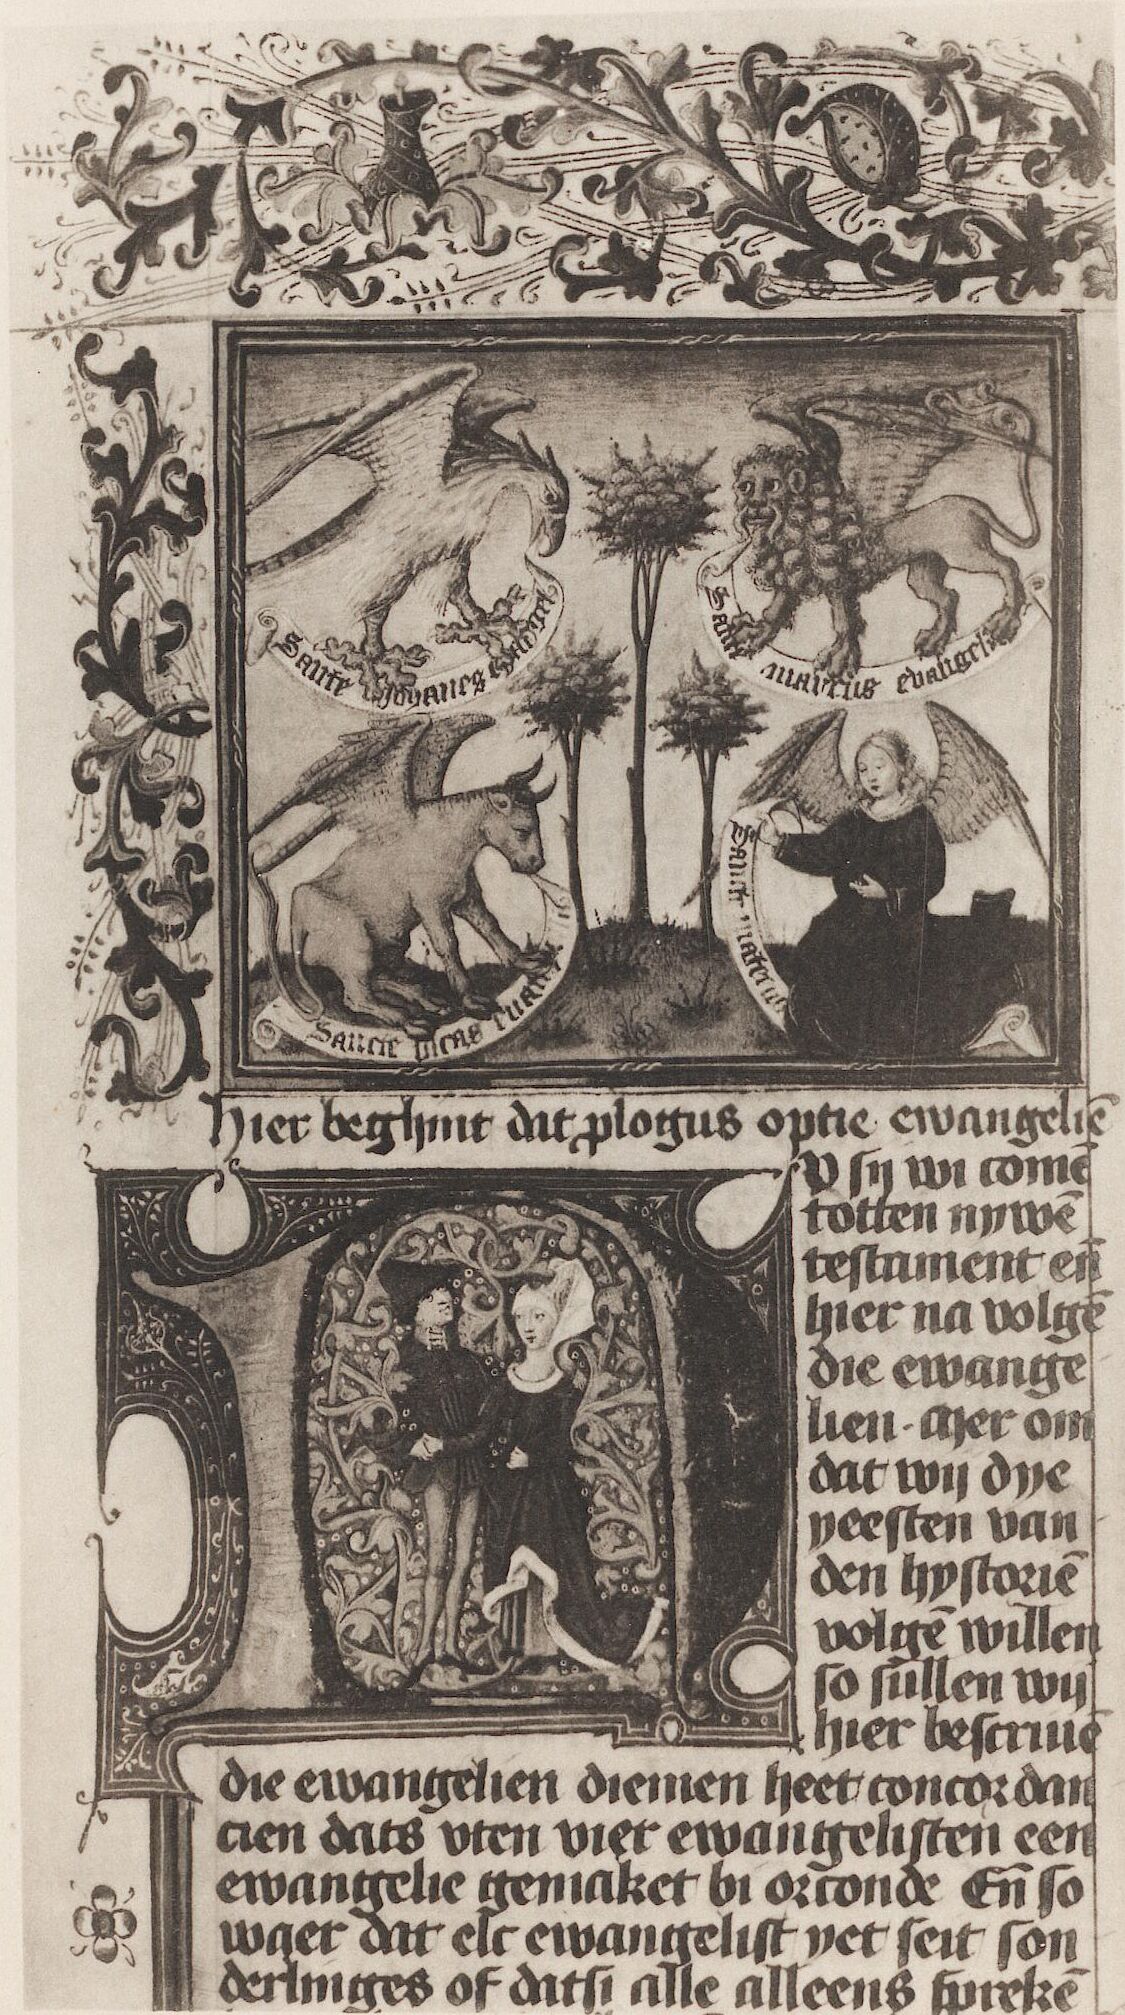 Sancte Johannes
Sancte marcus evangelist
Sancte lucas ewan
Sancte mateus
Hier beghint dat plogus optie ewangeliē
V sij wi comē
totten nywē
testament eñ
hier na volgē
die ewange
lien. Mer om
dat wij dye
yeesten van
den hystoriē
volgē willen
so sullen wij
hier bescriuē
die ewangelien diemen heet concordan
cien dats vten vier ewangelisten een
ewangelie gemaket bi orconde Eñ so
waer dat elc ewangelist yet seit son
derlinges of datsi alle alleens sprekē